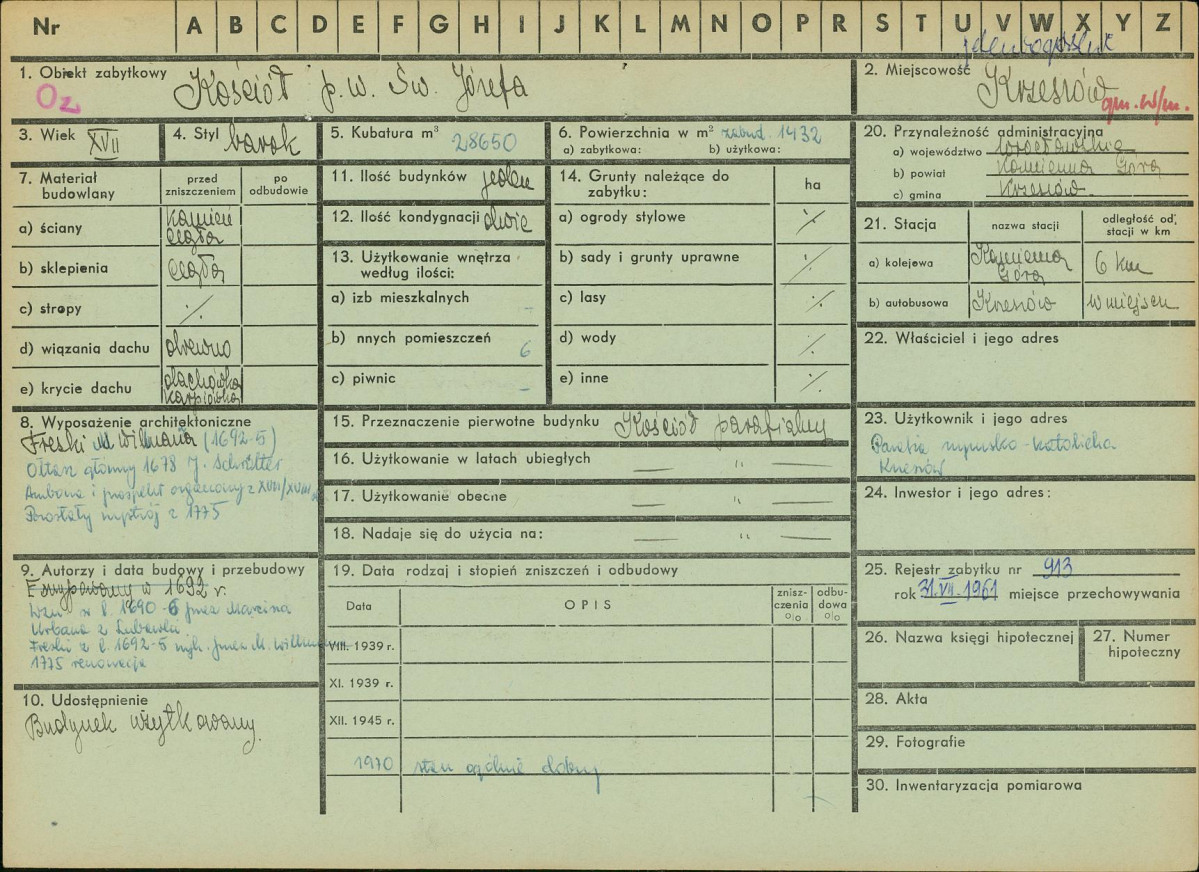 Nr A B C D E F G H I J K L M N O P R S T U V W X Y Z
1. Obiekt zabytkowy Kościół p.w. Św. Józefa
Oz
2. Miejscowość Krzeszów
gm. w/m.
3. Wiek XVII
4. Styl barok
5. Kubatura m³ 28650
6. Powierzchnia w m² zabud. 1432
a) zabytkowa: b) użytkowa:
7. Materiał budowlany
przed zniszczeniem
po odbudowie
a) ściany kamień cegła
b) sklepienia cegła
c) stropy ./.
d) wiązania dachu drewno
e) krycie dachu dachówka karpiówka
8. Wyposażenie architektoniczne
Freski M. Willmana (1692-5)
Ołtarz główny 1678 J. Schrötter
Ambona i prospekt organowy z XVII/XVIII w
Pozostały wystrój z 1775
9. Autorzy i data budowy i przebudowy
w 1692 r.
Wzn. w l. 1690-6 przez Marcina
Urbana z Lubawki
Freski z l. 1692-5 wyk. przez M. Willmana
1775 renowacja
10. Udostępnienie
Budynek użytkowany.
11. Ilość budynków jeden
12. Ilość kondygnacji dwie
13. Użytkowanie wnętrza według ilości:
a) izb mieszkalnych
b) nnych pomieszczeń 6
c) piwnic –
14. Grunty należące do zabytku:
ha
a) ogrody stylowe ./.
b) sady i grunty uprawne ./.
c) lasy ./.
d) wody ./.
e) inne ./.
15. Przeznaczenie pierwotne budynku Kościół parafialny
16. Użytkowanie w latach ubiegłych — " —
17. Użytkowanie obecne — " —
18. Nadaje się do użycia na: — " —
19. Data rodzaj i stopień zniszczeń i odbudowy
Data
OPIS
znisz-czenia %
odbu-dowa %
VIII. 1939 r.
XI. 1939 r.
XII. 1945 r.
1970 stan ogólnie dobry
20. Przynależność administracyjna
a) województwo wrocławskie
b) powiat Kamienna Góra
c) gmina Krzeszów
21. Stacja
nazwa stacji
odległość od stacji w km
a) kolejowa Kamienna Góra 6 km
b) autobusowa Krzeszów w miejscu
22. Właściciel i jego adres
23. Użytkownik i jego adres
Parafia rzymsko-katolicka
Krzeszów
24. Inwestor i jego adres:
25. Rejestr zabytku nr 913
rok 31.VII.1961 miejsce przechowywania
26. Nazwa księgi hipotecznej
27. Numer hipoteczny
28. Akta
29. Fotografie
30. Inwentaryzacja pomiarowa